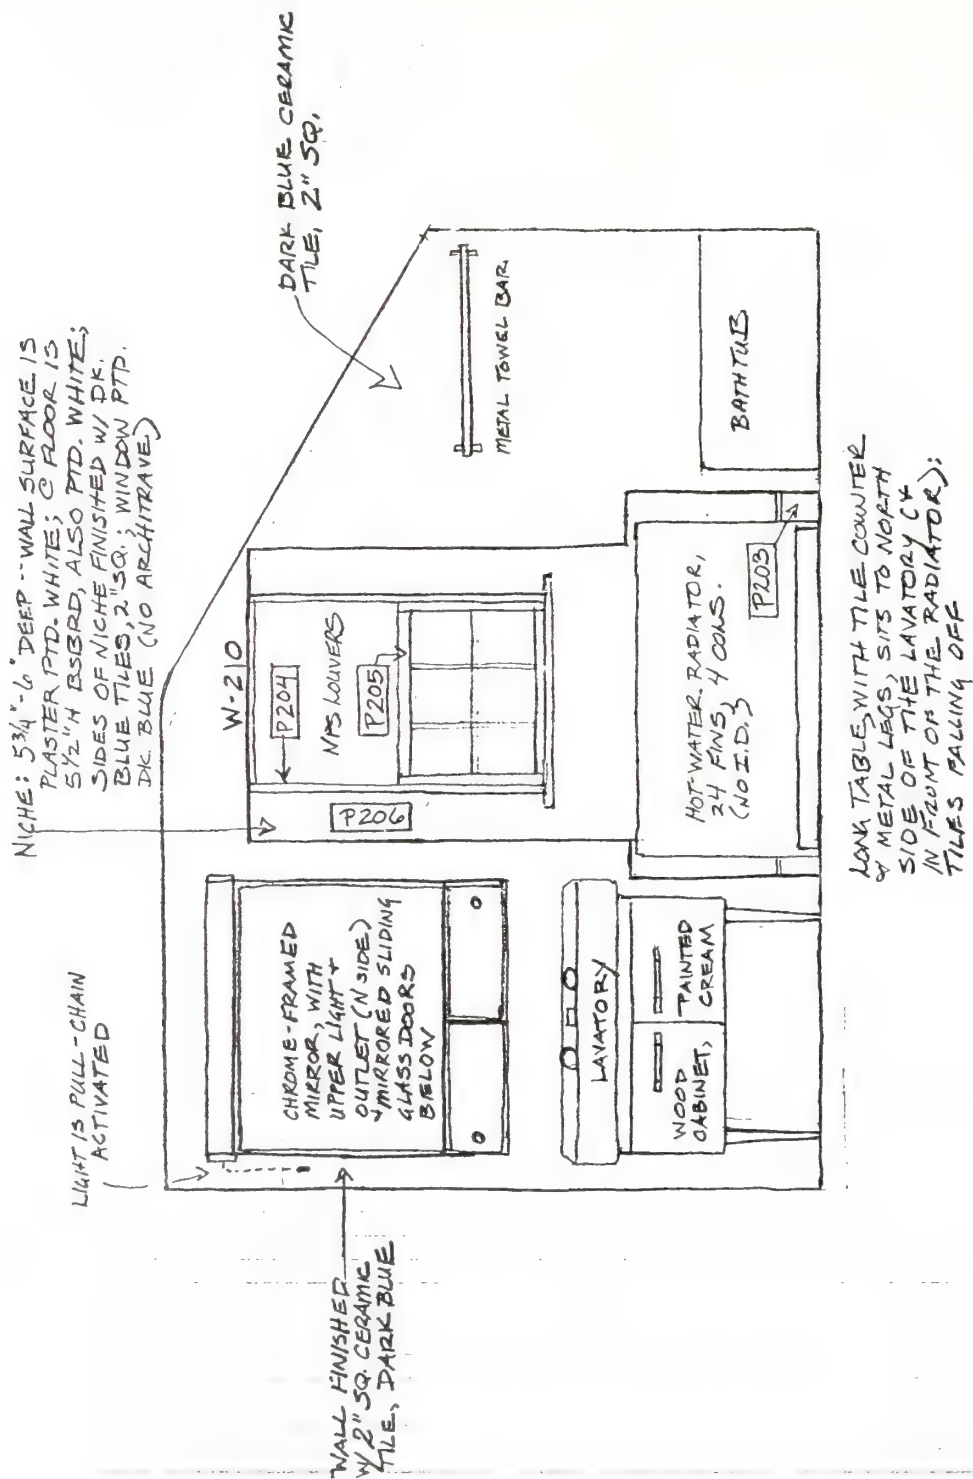 NICHE: 5 3/4"-6" DEEP -- WALL SURFACE IS
PLASTER PTD. WHITE; @ FLOOR IS
5 1/2" H BSBRD, ALSO PTD. WHITE;
SIDES OF NICHE FINISHED W/ DK.
BLUE TILES, 2" SQ.; WINDOW PTD.
DK. BLUE (NO ARCHITRAVE)
LIGHT IS PULL-CHAIN
ACTIVATED
DARK BLUE CERAMIC
TILE, 2" SQ.
WALL FINISHED
W/ 2" SQ. CERAMIC
TILE, DARK BLUE
CHROME-FRAMED
MIRROR, WITH
UPPER LIGHT +
OUTLET (N SIDE)
+ MIRRORED SLIDING
GLASS DOORS
BELOW
W-210
P204
NPS LOUVERS
P205
P206
METAL TOWEL BAR
LAVATORY
WOOD
CABINET,
PAINTED
CREAM
HOT-WATER RADIATOR,
24 FINS, 4 COLS.
(NO I.D.)
P203
BATHTUB
LONG TABLE, WITH TILE COUNTER
& METAL LEGS, SITS TO NORTH
SIDE OF THE LAVATORY (&
IN FRONT OF THE RADIATOR);
TILES FALLING OFF